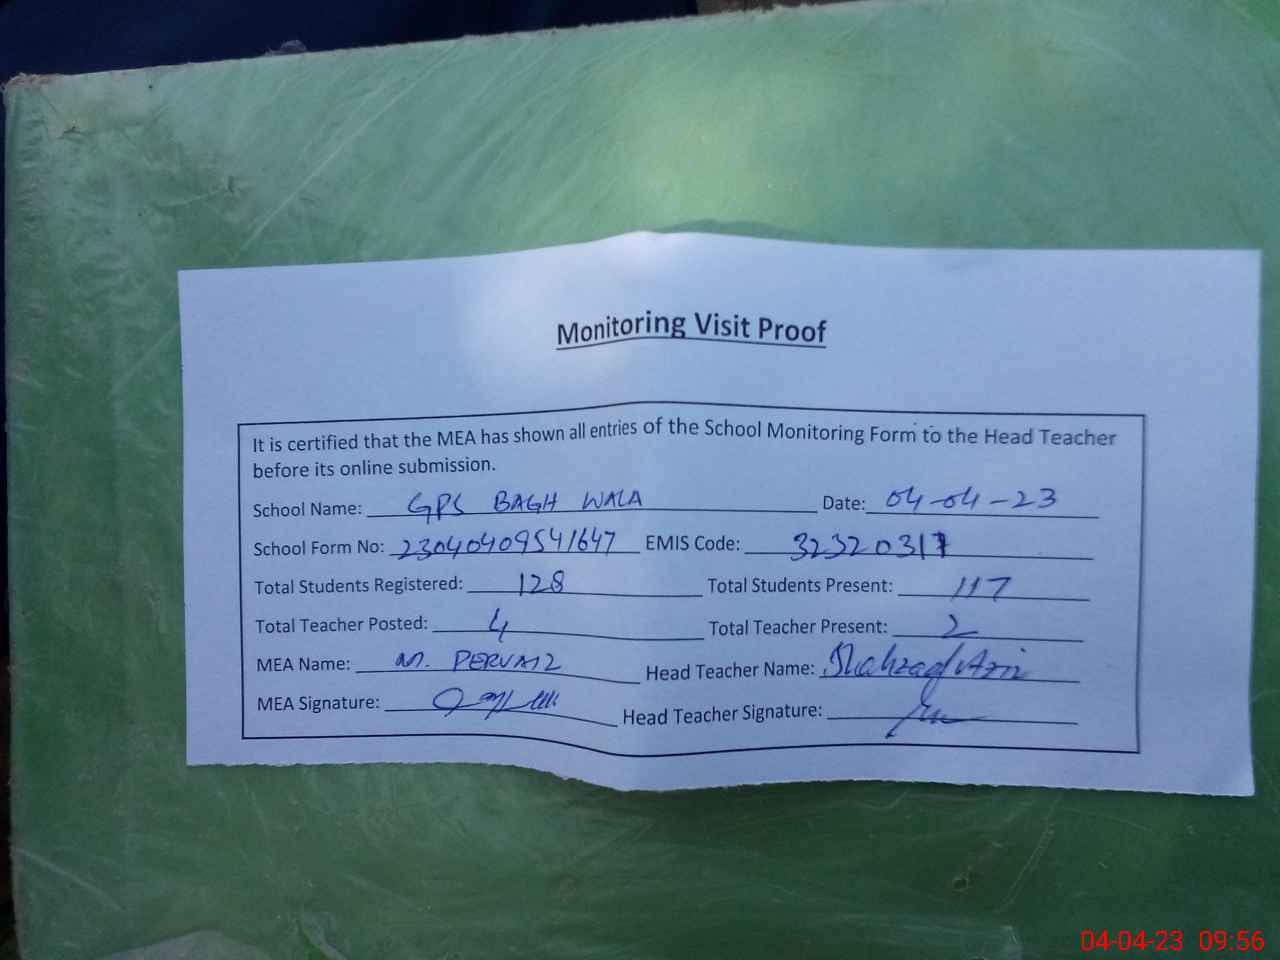 Monitoring Visit Proof
It is certified that the MEA has shown all entries of the School Monitoring Form to the Head Teacher
before its online submission.
School Name: GPS BAGH WALA Date: 04-04-23
School Form No: 23040409541647 EMIS Code: 32320317
Total Students Registered: 128 Total Students Present: 117
Total Teacher Posted: 4 Total Teacher Present: 2
MEA Name: M. PERVAIZ Head Teacher Name: Shahzad Aziz
MEA Signature: Head Teacher Signature:
04-04-23 09:56